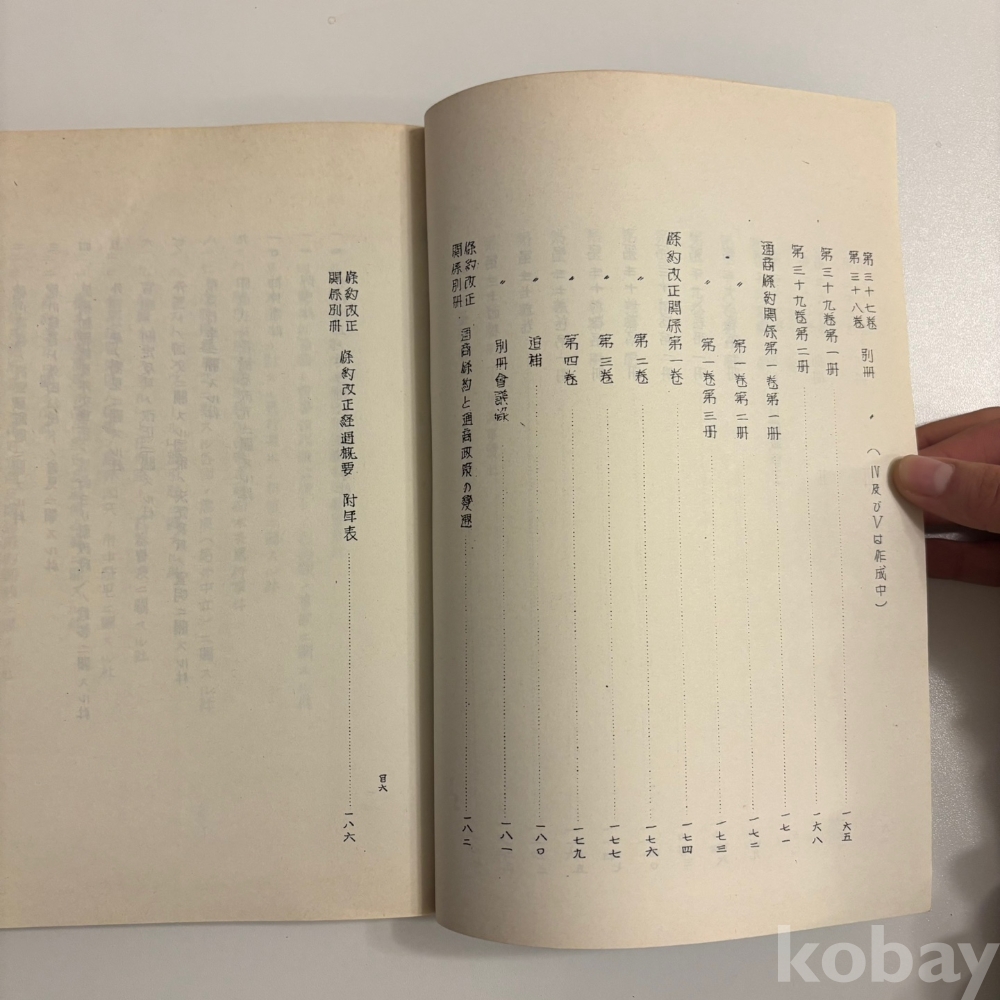 第三十七巻
第三十八巻 別册 〃 (Ⅳ及びⅤは作成中)
第三十九巻第一册 一六五
第三十九巻第二册 一六八
通商條約関係第一巻第一册 一七一
〃 第一巻第二册 一七二
〃 第一巻第三册 一七三
條約改正関係第一巻 一七四
〃 第二巻 一七六
〃 第三巻 一七七
〃 第四巻 一七九
〃 追補 一八〇
〃 別册會議録 一八一
條約改正
関係別册 通商條約と通商政策の變遷 一八二
條約改正
関係別册 條約改正経過概要 附年表 一八六
目六
kobay